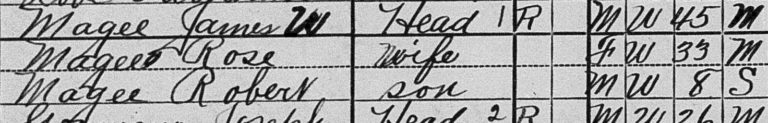 Magee James W Head 1 R M W 45 M
Magee Rose wife F W 33 M
Magee Robert son M W 8 S
Joseph Head 2 R M W 26 M